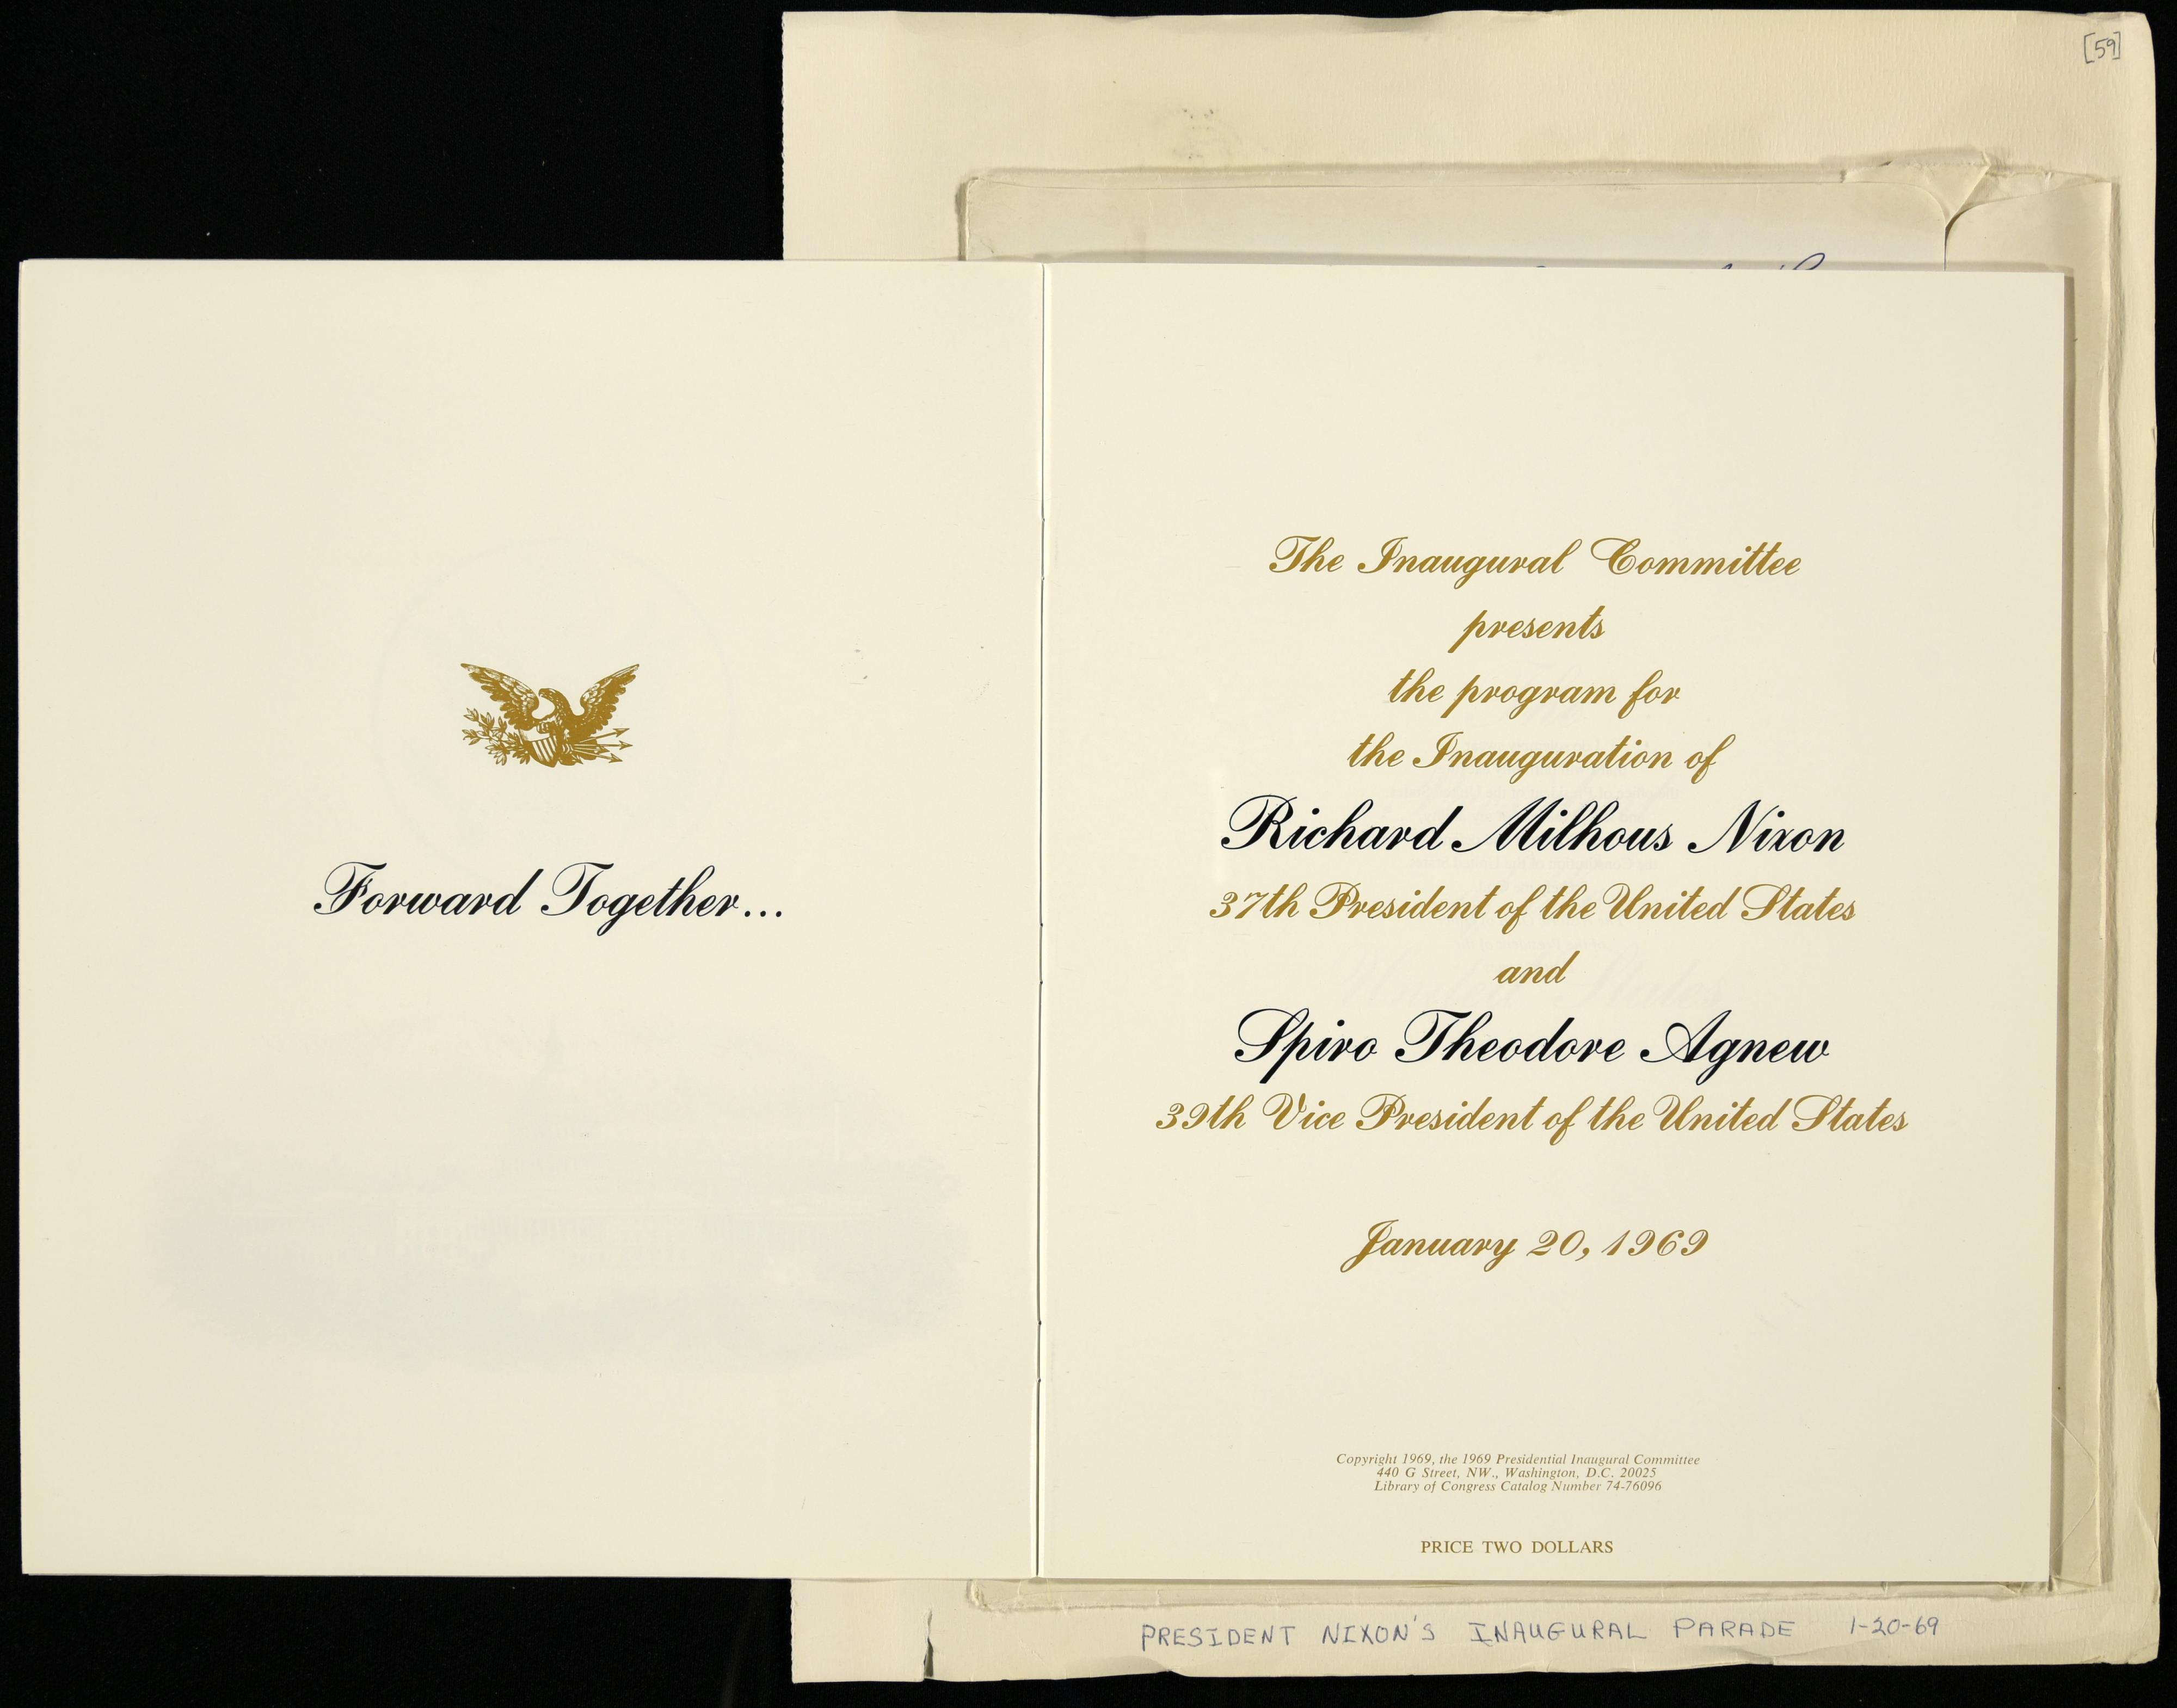 [59]
Forward Together...
The Inaugural Committee
presents
the program for
the Inauguration of
Richard Milhous Nixon
37th President of the United States
and
Spiro Theodore Agnew
39th Vice President of the United States
January 20, 1969
Copyright 1969, the 1969 Presidential Inaugural Committee
440 G Street, NW., Washington, D.C. 20025
Library of Congress Catalog Number 74-76096
PRICE TWO DOLLARS
PRESIDENT NIXON'S INAUGURAL PARADE 1-20-69